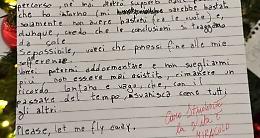 percorso, ne mai detto supporto
che ho intorno, sarebbe bastato
solamente non avere bastoni fra le ruote) e,
dunque, credo che le conclusioni si traggano
da sole.
Se possibile, vorrei che ponessi fine alle mie
sofferenze.
Vorrei potermi addormentare e non svegliarmi
più, non essere mai esistito, rimanere un
ricordo lontano e vago che, con il
passare del tempo, svanisca come tutti
gli altri.
Please, let me fly away,
Caro
la vita è
MIRACOLO